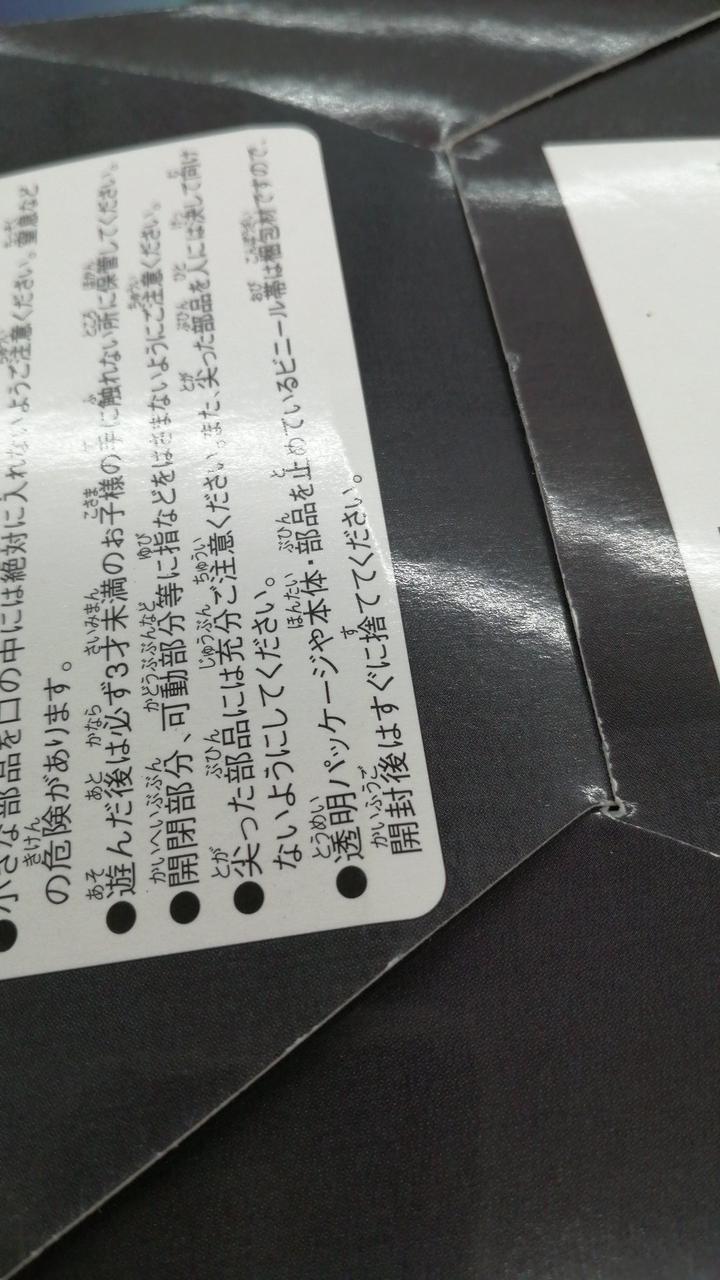 ●小さな部品を口の中には絶対に入れないようご注意ください。窒息など
の危険があります。
●遊んだ後は必ず3才未満のお子様の手に触れない所に保管してください。
●開閉部分、可動部分等に指などをはさまないようにご注意ください。
●尖った部品には充分ご注意ください。また、尖った部品を人には決して向け
ないようにしてください。
●透明パッケージや本体・部品を止めているビニール帯は梱包材ですので、
開封後はすぐに捨ててください。